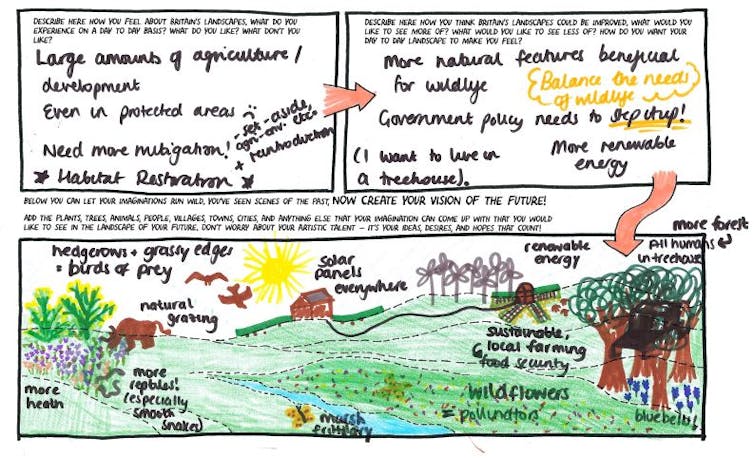 DESCRIBE HERE HOW YOU FEEL ABOUT BRITAIN'S LANDSCAPES, WHAT DO YOU
EXPERIENCE ON A DAY TO DAY BASIS? WHAT DO YOU LIKE? WHAT DON'T YOU
LIKE?
Large amounts of agriculture /
development
Even in protected areas :(
Need more mitigation!
- set-aside,
agri-env.
+ reintroduction
* Habitat Restoration *
DESCRIBE HERE HOW YOU THINK BRITAIN'S LANDSCAPES COULD BE IMPROVED, WHAT WOULD YOU
LIKE TO SEE MORE OF? WHAT WOULD YOU LIKE TO SEE LESS OF? HOW DO YOU WANT YOUR
DAY TO DAY LANDSCAPE TO MAKE YOU FEEL?
More natural features beneficial
for wildlife
Balance the needs
of wildlife
Government policy needs to step it up!
(I want to live in
a treehouse).
More renewable
energy
BELOW YOU CAN LET YOUR IMAGINATIONS RUN WILD, YOU'VE SEEN SCENES OF THE PAST, NOW CREATE YOUR VISION OF THE FUTURE!
ADD THE PLANTS, TREES, ANIMALS, PEOPLE, VILLAGES, TOWNS, CITIES, AND ANYTHING ELSE THAT YOUR IMAGINATION CAN COME UP WITH THAT YOU WOULD
LIKE TO SEE IN THE LANDSCAPE OF YOUR FUTURE, DON'T WORRY ABOUT YOUR ARTISTIC TALENT – IT'S YOUR IDEAS, DESIRES, AND HOPES THAT COUNT!
more forest
All humans
in treehouse
hedgerows + grassy edges
= birds of prey
solar
panels
everywhere
renewable
energy
natural
grazing
sustainable,
local farming
food security
more
heath
more
reptiles!
(especially
smooth
snakes)
marsh
fritillary
wildflowers
= pollinators
bluebells!